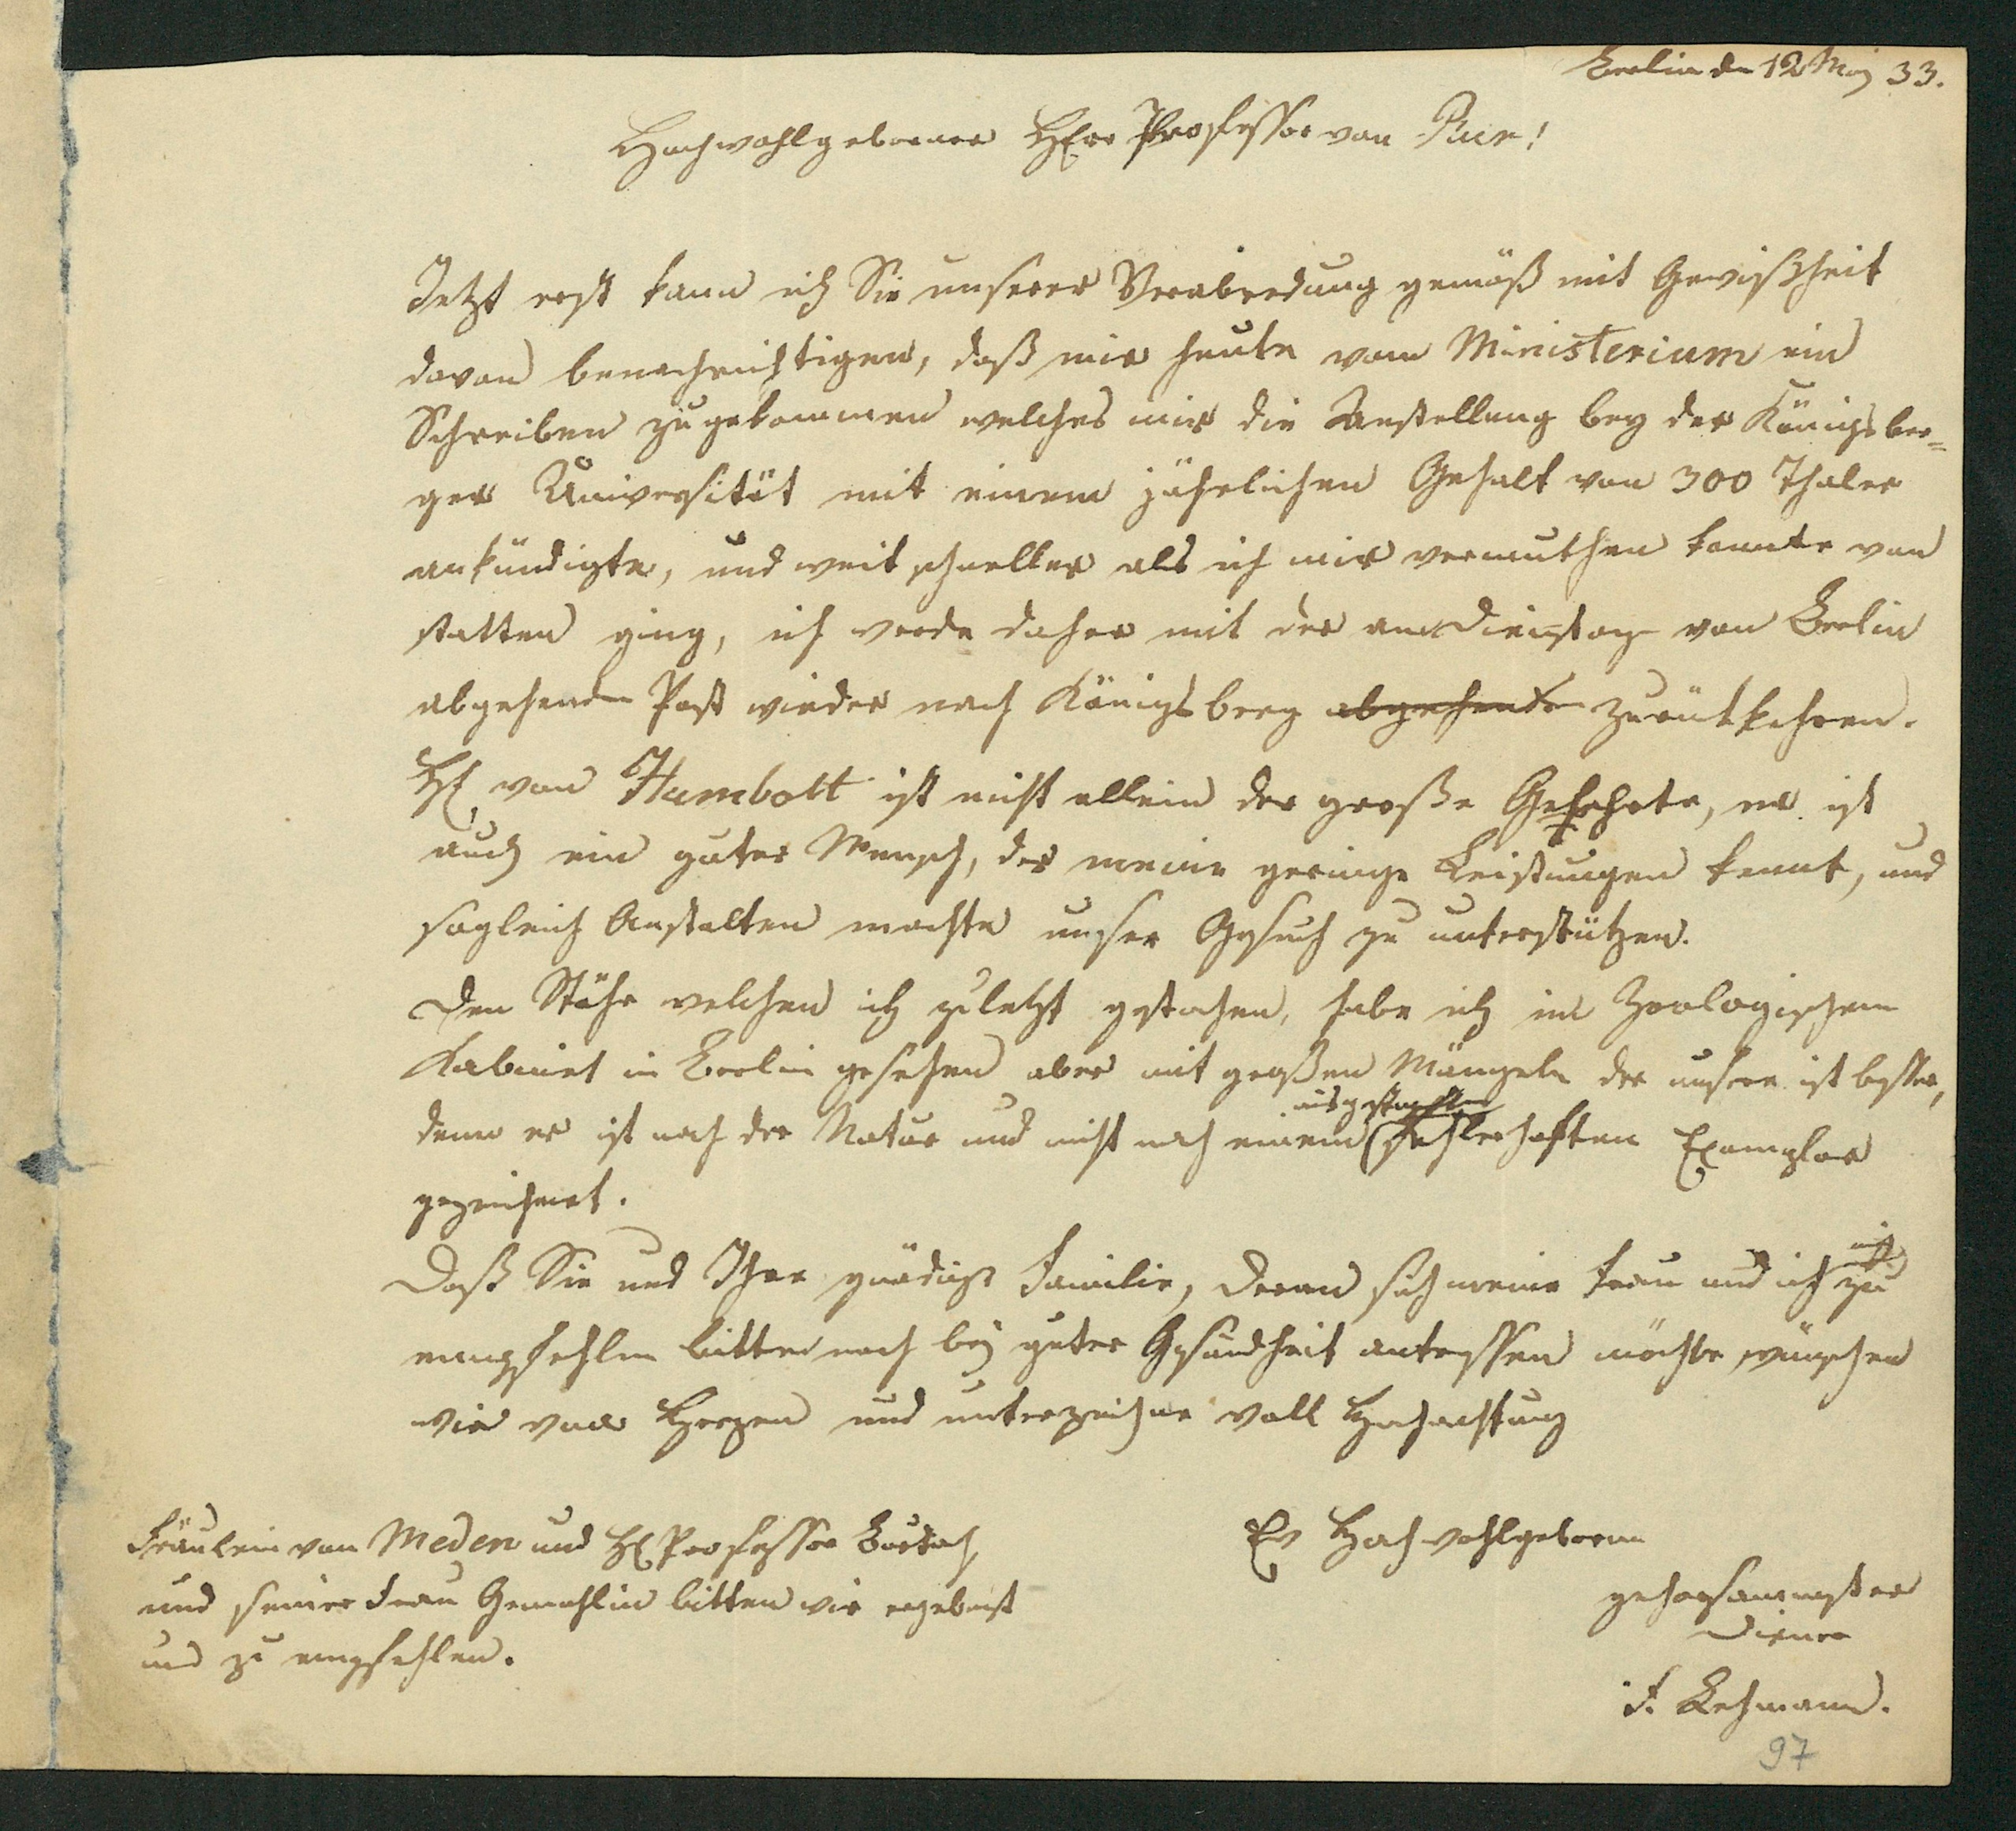 Berlin den 12 May 33.
Hochwohlgeborner HErr Professor von Baer!
Jetzt erst kann ich Sie unserer Verabredung gemäß mit Gewißheit
davon benachrichtigen, daß mir heute vom Ministerium ein
Schreiben zugekommen welches mir die Anstellung bey der Königsber=
ger Universität mit einem jährlichen Gehalt von 300 Thaler
ankündigte, und weit schneller als ich mir vermuthen konnte von
statten ging, ich werde daher mit der am Dienstag von Berlin
abgehenden Post wieder nach Königsberg abgehenden zurükkehren.
H von Humbolt ist nicht allein der große Gelehrte, er ist
auch ein guter Mensch, der meine geringe Leistungen kennt, und
sogleich Anstalten machte unser Gesuch zu unterstützen.
Den Stöhr welchen ich zuletzt gestochen, habe ich im Zoologischem
Kabinet in Berlin gesehen aber mit großen Mängeln der unsere ist besser,
ausgestopften
denn er ist nach der Natur und nicht nach einem fehlerhaften Exemplar
gezeichnet.
Daß Sie und Ihre gnädige Familie, deren sich meine Frau und ich zu
empfehlen bitten noch bey guter Gesundheit antreffen möchte, wünschen
wir von Herzen und unterzeichne voll Hochachtung
Ew Hochwohlgeboren
gehorsammster
Diener
F. Lehmann.
Fräulein von Meden und H Professor Burdach
und seiner Frau Gemahlin bitten wir ergebenst
uns zu empfehlen.
97